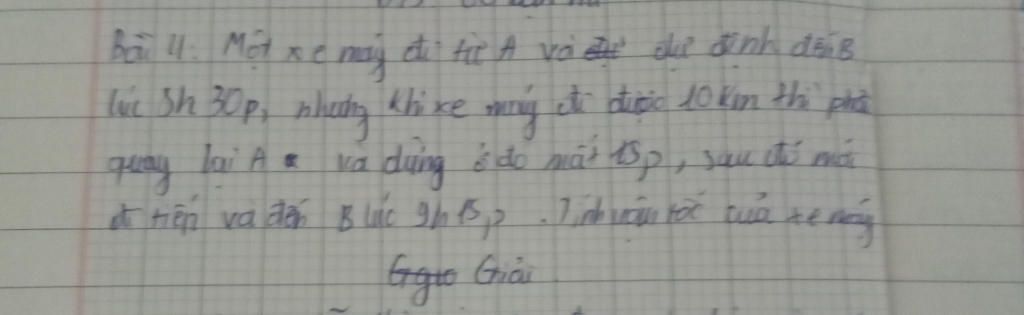 Bài 4: Một xe máy đi từ A và dự định đến B
lúc 8h30p, nhưng khi xe máy đi được 10km thì phải
quay lại A và dừng ở đó mất 15p, sau đó mới
đi tiếp và đến B lúc 9h15p. Tính vận tốc của xe máy
Giải